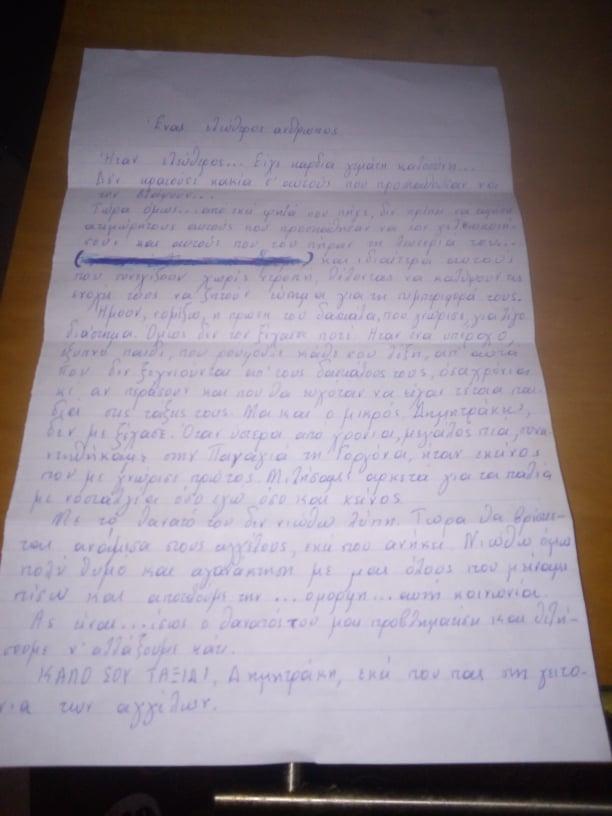 Ένας ελεύθερος άνθρωπος
Ήταν ελεύθερος... Είχε καρδιά γεμάτη καλοσύνη...
Δεν κρατούσε κακία σ' αυτούς που προσπαθούσαν να
τον βλάψουν...
Τώρα όμως... από εκεί ψηλά που πήγε, δεν πρέπει να αφήσει
ατιμώρητους αυτούς που προσπάθησαν να τον
και αυτούς που του πήραν τη ζωτερία του...
και ιδιαίτερα αυτούς
που συνεχίζουν χωρίς ντροπή, θέλοντας να καλύψουν τις
ενοχές τους να ζητούν για τη συμπεριφορά τους.
Ήμουν, νομίζω, η πρώτη του δασκάλα, που γνώρισε, για λίγο
διάστημα. Όμως δεν τον ξέχασα ποτέ. Ήταν ένα υπέροχο,
έξυπνο παιδί, που ρουφούσε κάθε σου λέξη, απ' αυτά
που δεν ξεχνιούνται απ' τους δασκάλους τους, όσα χρόνια
κι αν περάσουν και που θα εύχονταν να είχαν τέτοια παι-
διά στις τάξεις τους. Μα και ο μικρός Δημητράκης,
δεν με ξέχασε. Όταν ύστερα από χρόνια, μεγάλος πια, συνα-
ντηθήκαμε στην Παναγιά τη Γοργόνα, ήταν εκείνος
που με γνώρισε πρώτος. Μιλήσαμε αρκετά για τα παλιά
με νοσταλγία όσο εγώ, όσο και κείνος.
Με το θάνατό του δεν νιώθω λύπη. Τώρα θα βρίσκε-
ται ανάμεσα στους αγγέλους, εκεί που ανήκει. Νιώθω όμως
πολύ θυμό και αγανάκτηση με μας όλους που μείναμε
πίσω και αποτελούμε την... όμορφη... αυτή κοινωνία.
Ας είναι... ίσως ο θάνατός του μας προβληματίσει και θελή-
σουμε ν' αλλάξουμε κάτι.
ΚΑΛΟ ΣΟΥ ΤΑΞΙΔΙ, Δημητράκη, εκεί που πας στη γειτο-
νιά των αγγέλων.